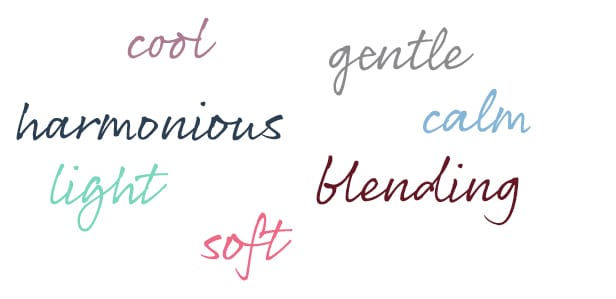 cool
gentle
harmonious
calm
light
blending
soft